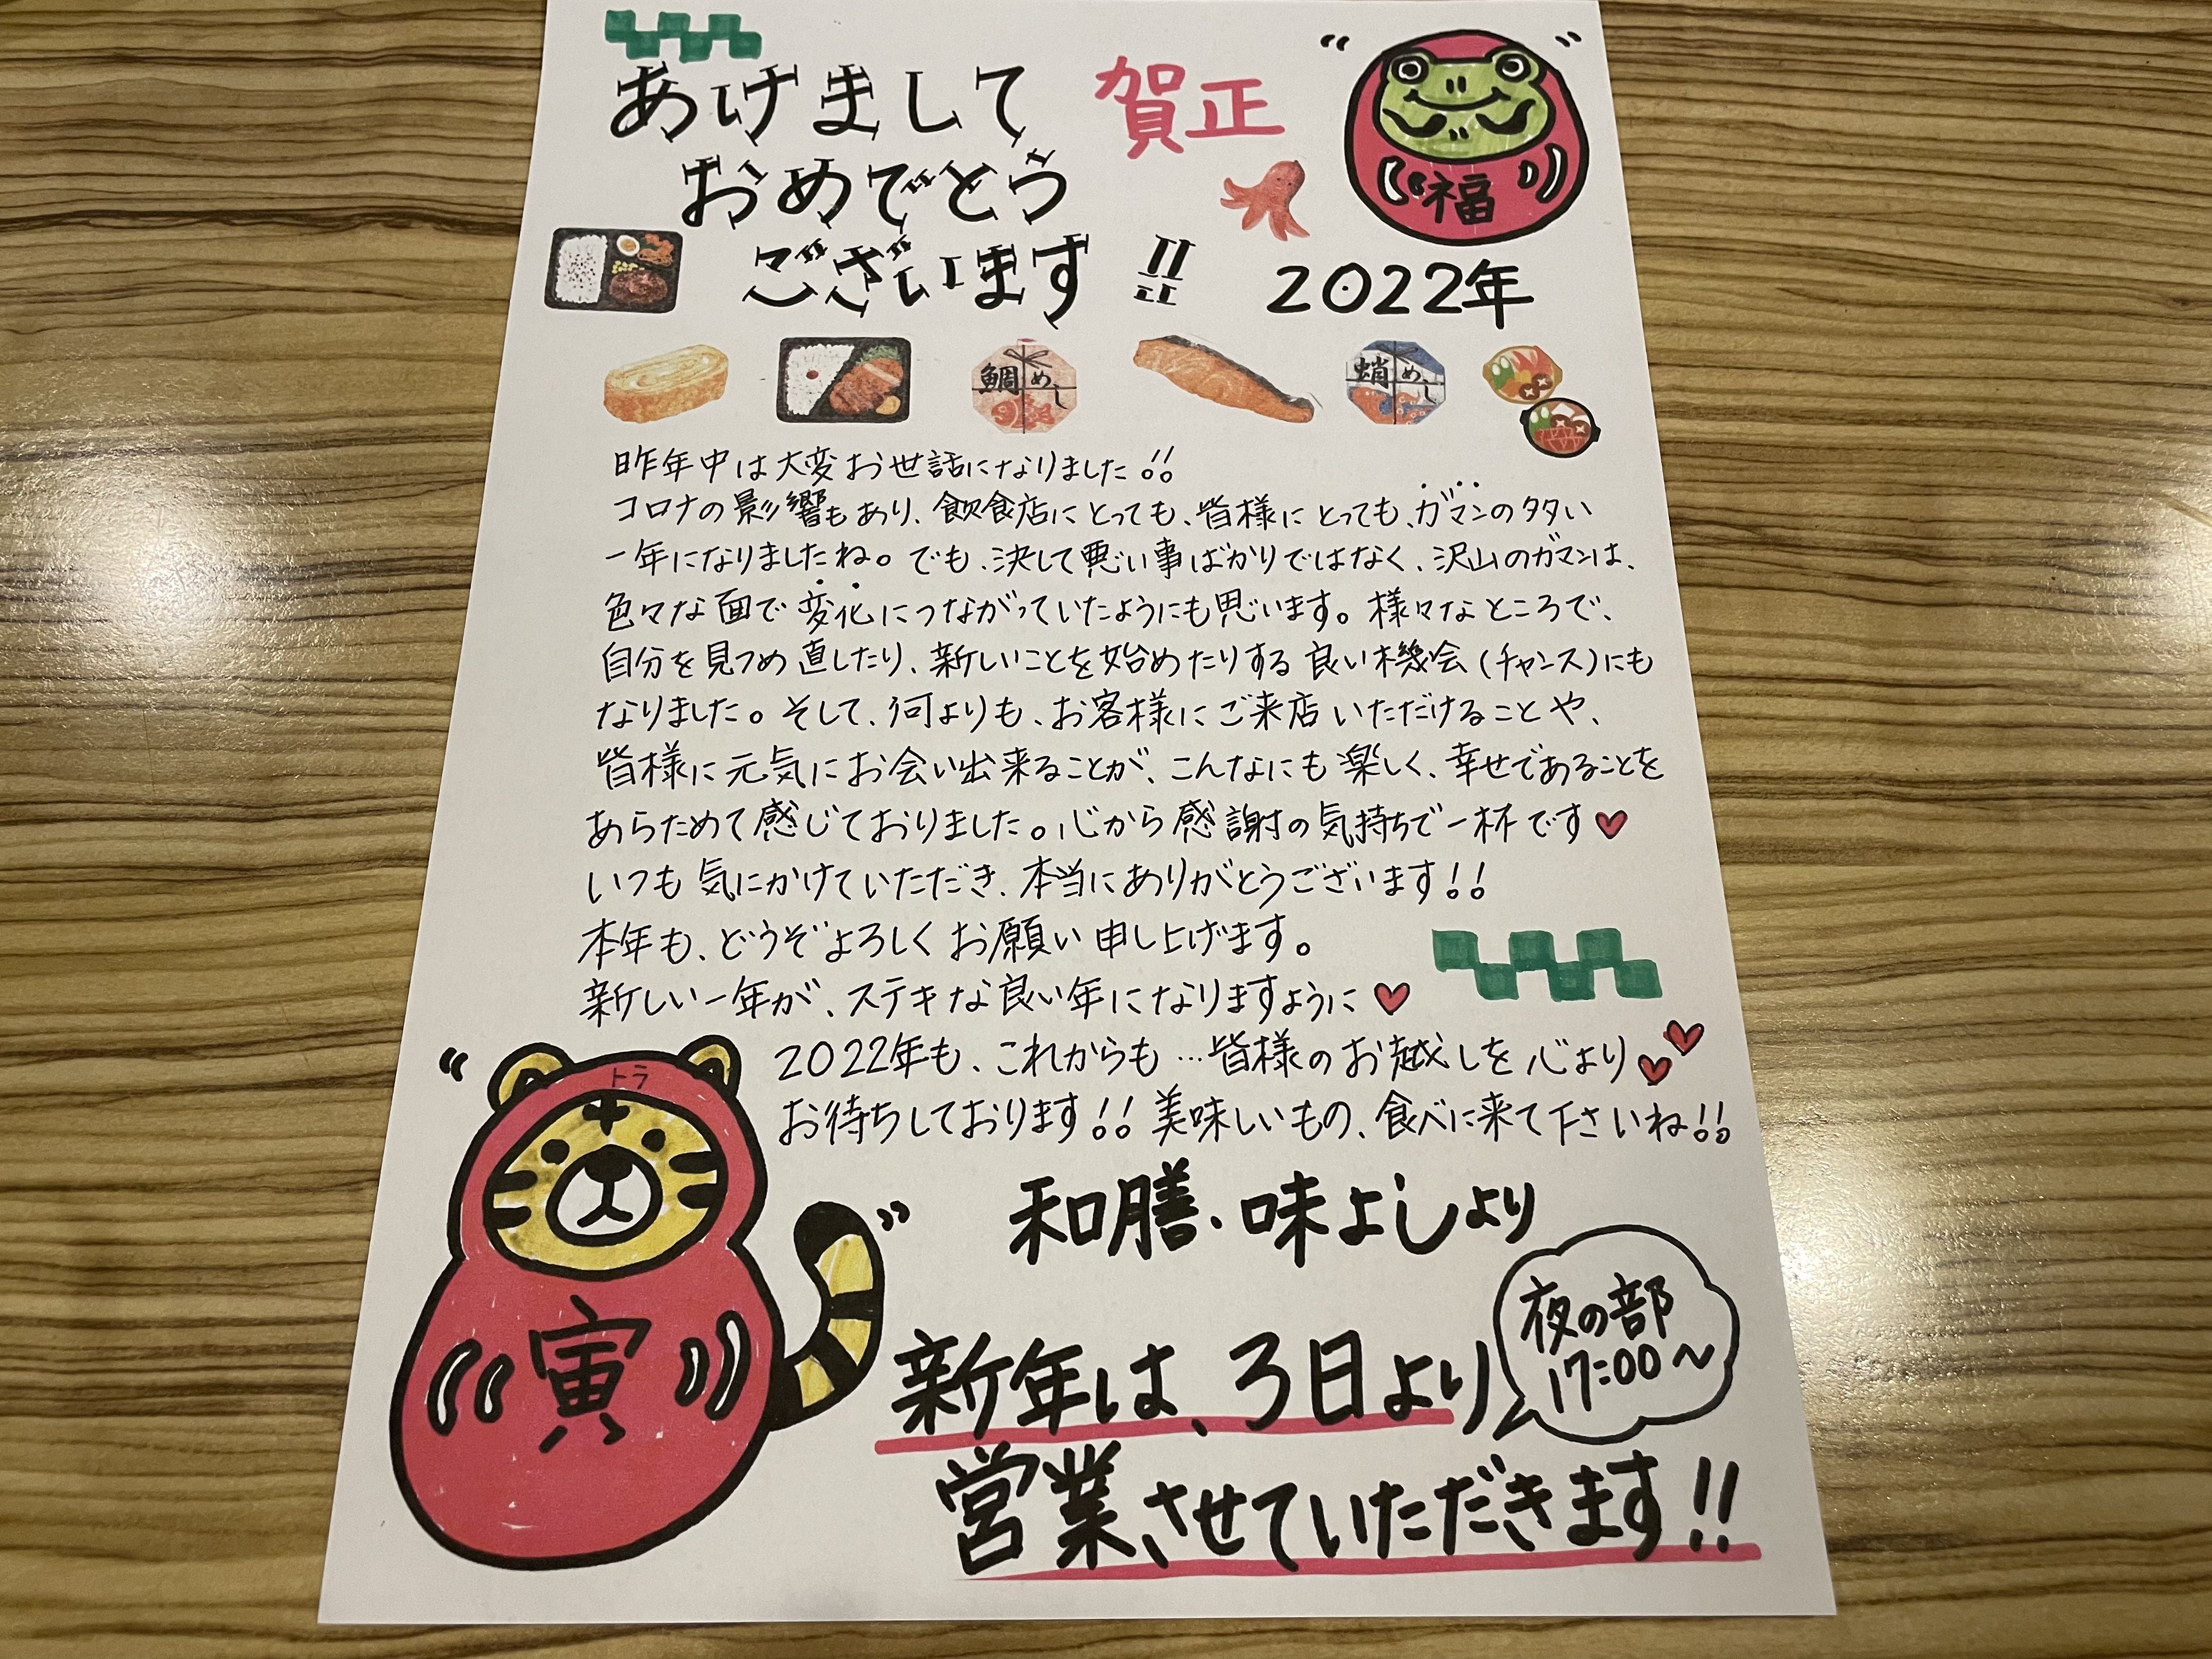 あけまして
賀正
おめでとう
ございます!!
福
2022年
鯛めし
蛸めし
昨年中は大変お世話になりました!!
コロナの影響もあり、飲食店にとっても、皆様にとっても、ガマンの多い
一年になりましたね。でも、決して悪い事ばかりではなく、沢山のガマンは、
色々な面で変化につながっていたようにも思います。様々なところで、
自分を見つめ直したり、新しいことを始めたりする良い機会(チャンス)にも
なりました。そして、何よりも、お客様にご来店いただけることや、
皆様に元気にお会い出来ることが、こんなにも楽しく、幸せであることを
あらためて感じておりました。心から感謝の気持ちで一杯です♥
いつも気にかけていただき、本当にありがとうございます!!
本年も、どうぞよろしくお願い申し上げます。
新しい一年が、ステキな良い年になりますように♥
2022年も、これからも…皆様のお越しを心より♥♥
お待ちしております!!美味しいもの、食べに来て下さいね!!
トラ
寅
和膳・味よしより
夜の部
17:00〜
新年は、3日より
営業させていただきます!!